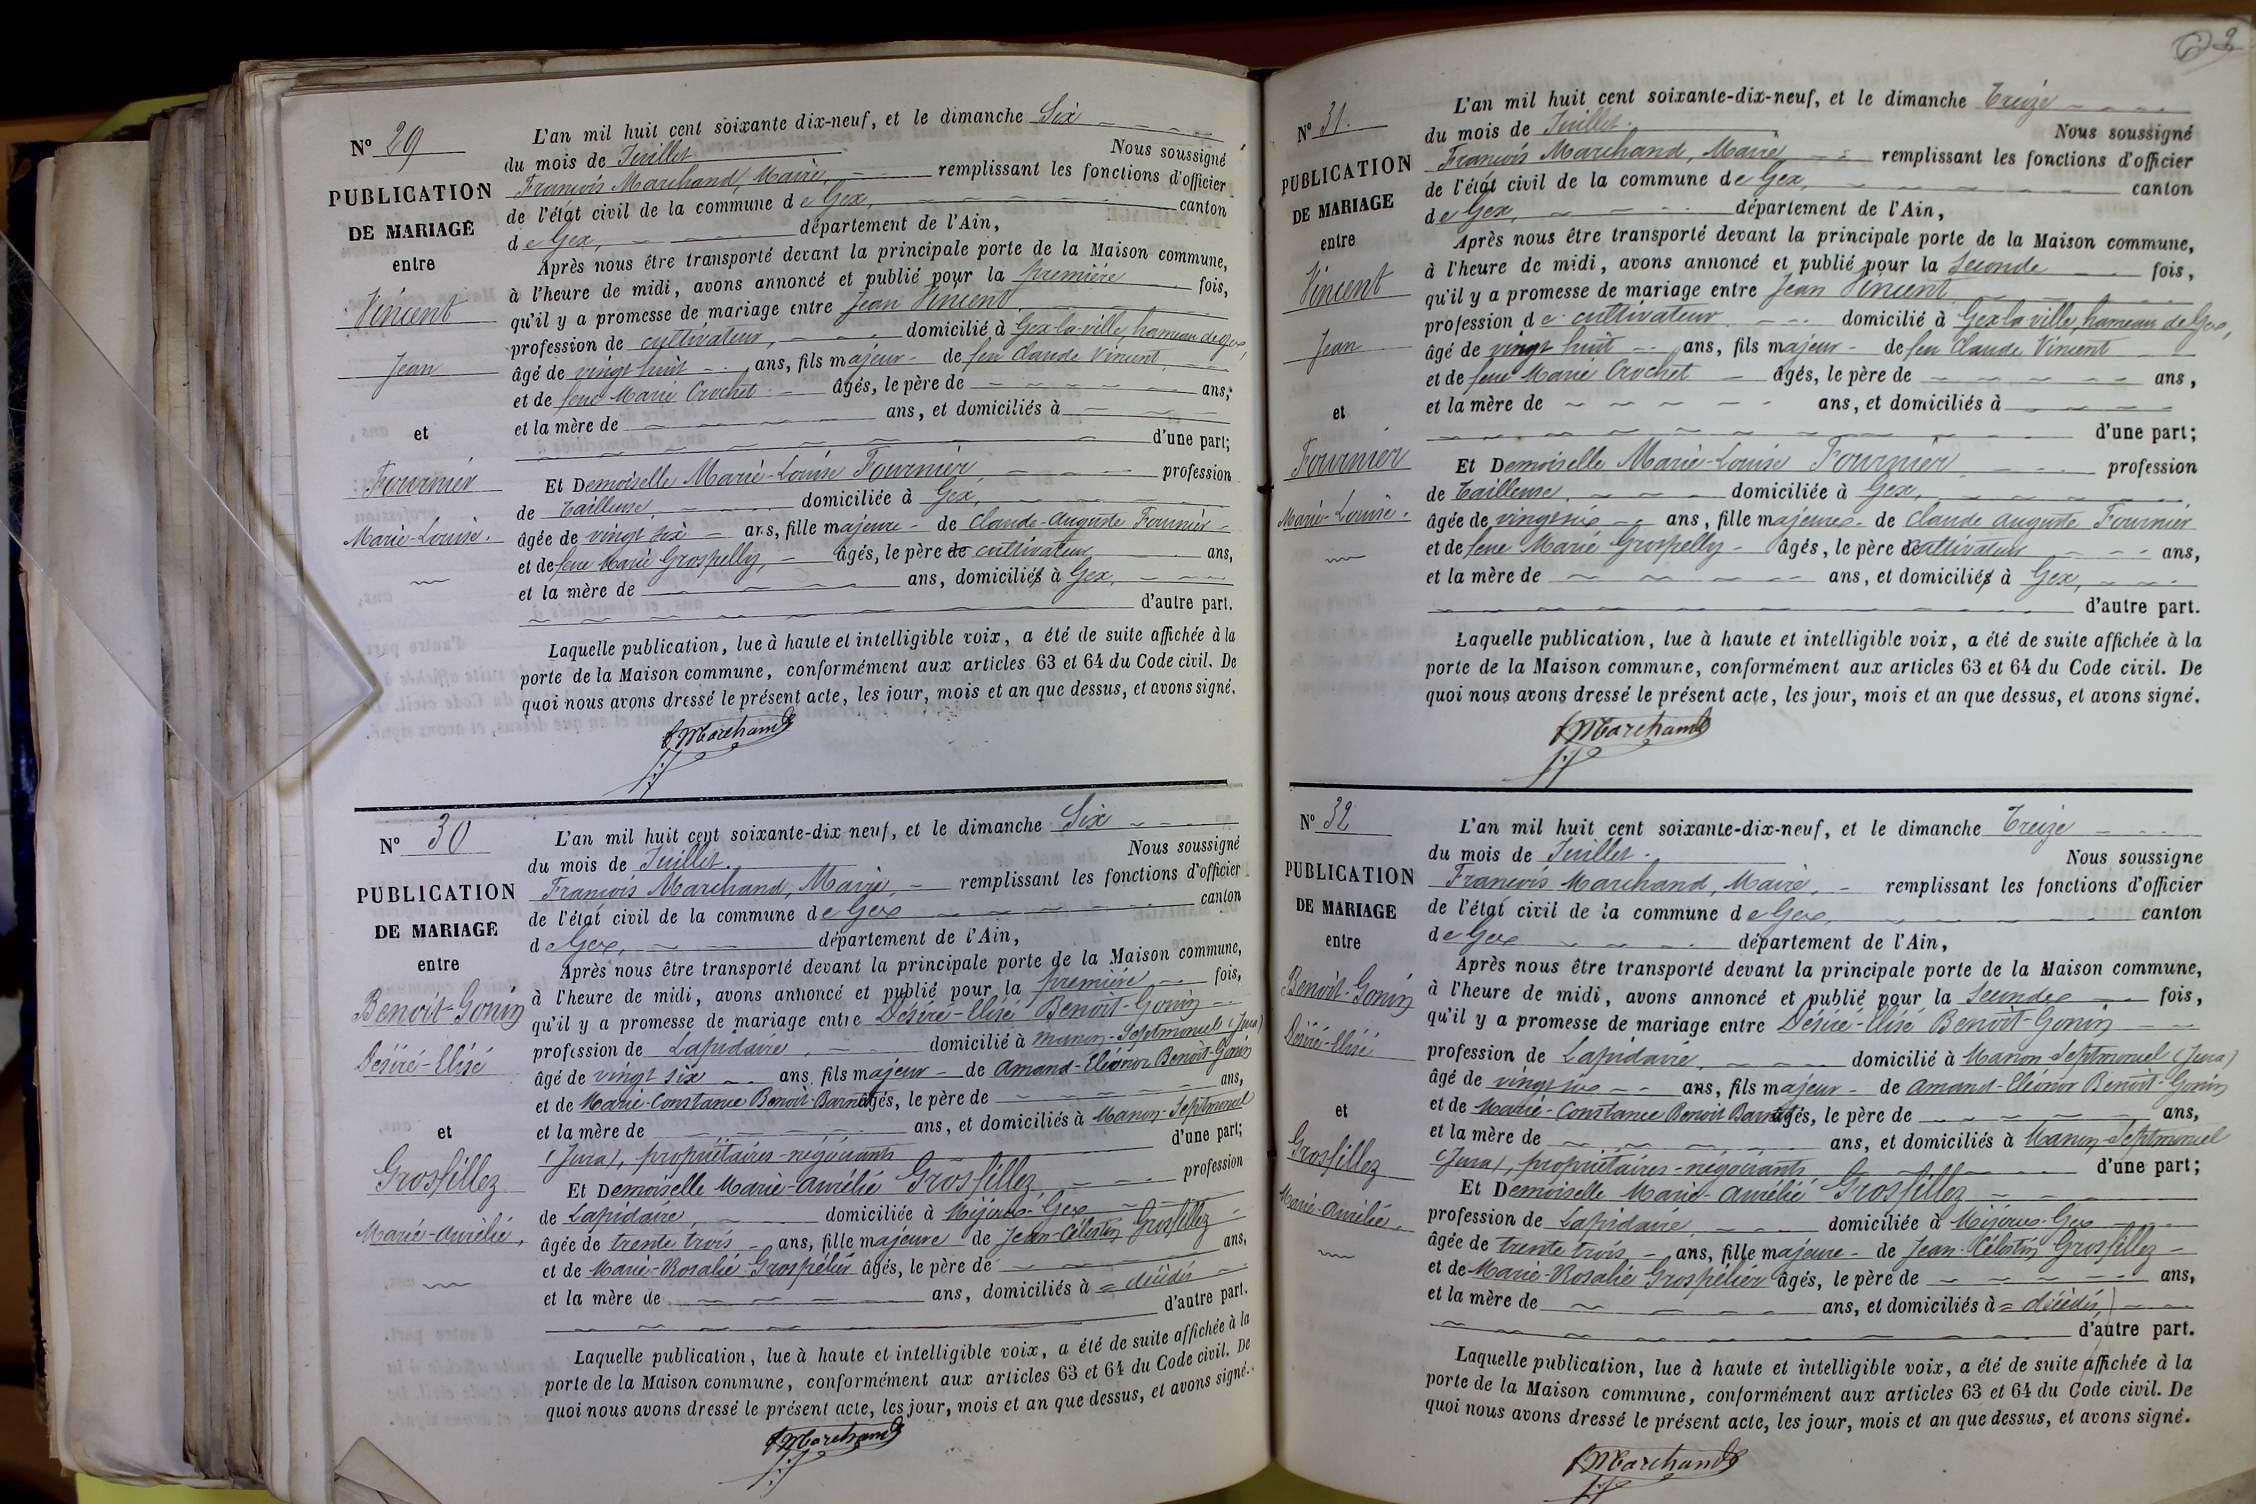 N° 29
PUBLICATION
DE MARIAGE
entre
Vincent
Jean
et
Fournier
Marie-Louise.
L'an mil huit cent soixante dix-neuf, et le dimanche Six
du mois de Juillet. Nous soussigné
François Marchand, Maire, remplissant les fonctions d'officier
de l'état civil de la commune de Gex, canton
de Gex, département de l'Ain,
Après nous être transporté devant la principale porte de la Maison commune,
à l'heure de midi, avons annoncé et publié pour la première fois,
qu'il y a promesse de mariage entre Jean Vincent
profession de cultivateur, domicilié à Gex-la-ville, hameau de Gex,
âgé de vingt huit ans, fils majeur de feu Claude Vincent
et de feue Marie Crochet âgés, le père de ans,
et la mère de ans, et domiciliés à
d'une part;
Et Demoiselle Marie-Louise Fournier profession
de Tailleuse, domiciliée à Gex,
âgée de vingt six ans, fille majeure de Claude-Auguste Fournier
et de feue Marie Grospelly, âgés, le père de cultivateur ans,
et la mère de ans, domiciliés à Gex,
d'autre part.
Laquelle publication, lue à haute et intelligible voix, a été de suite affichée à la
porte de la Maison commune, conformément aux articles 63 et 64 du Code civil. De
quoi nous avons dressé le présent acte, les jour, mois et an que dessus, et avons signé.
F Marchand
N° 30
PUBLICATION
DE MARIAGE
entre
Benoit-Gonin
Désiré-Elisé
et
Grosfillez
Marie-Aurélie,
L'an mil huit cent soixante-dix neuf, et le dimanche Six
du mois de Juillet. Nous soussigné
François Marchand, Maire, remplissant les fonctions d'officier
de l'état civil de la commune de Gex canton
de Gex, département de l'Ain,
Après nous être transporté devant la principale porte de la Maison commune,
à l'heure de midi, avons annoncé et publié pour la première fois,
qu'il y a promesse de mariage entre Désiré-Elisé Benoit-Gonin
profession de Lapidaire, domicilié à Manon-Septmoncel (Jura)
âgé de vingt six ans, fils majeur de Amand-Eléonor Benoit-Gonin
et de Marie-Constance Benoit-Barnet âgés, le père de ans,
et la mère de ans, et domiciliés à Manon-Septmoncel
(Jura), propriétaires-négociants d'une part;
Et Demoiselle Marie-Aurélie Grosfillez profession
de Lapidaire, domiciliée à Mijoux-Gex
âgée de trente trois ans, fille majeure de Jean-Célestin Grosfillez
et de Marie-Rosalie Grospélier âgés, le père de ans,
et la mère de ans, domiciliés à = décédés
d'autre part.
Laquelle publication, lue à haute et intelligible voix, a été de suite affichée à la
porte de la Maison commune, conformément aux articles 63 et 64 du Code civil. De
quoi nous avons dressé le présent acte, les jour, mois et an que dessus, et avons signé.
F Marchand
N° 31.
PUBLICATION
DE MARIAGE
entre
Vincent
Jean
et
Fournier
Marie-Louise.
L'an mil huit cent soixante-dix-neuf, et le dimanche Treize
du mois de Juillet. Nous soussigné
François Marchand, Maire remplissant les fonctions d'officier
de l'état civil de la commune de Gex, canton
de Gex, département de l'Ain,
Après nous être transporté devant la principale porte de la Maison commune,
à l'heure de midi, avons annoncé et publié pour la Seconde fois,
qu'il y a promesse de mariage entre Jean Vincent
profession de cultivateur domicilié à Gex la ville, hameau de Gex,
âgé de vingt huit ans, fils majeur de feu Claude Vincent
et de feue Marie Crochet âgés, le père de ans,
et la mère de ans, et domiciliés à
d'une part;
Et Demoiselle Marie-Louise Fournier profession
de Tailleuse, domiciliée à Gex,
âgée de vingt six ans, fille majeure de Claude Auguste Fournier
et de feue Marie Grospelly âgés, le père de cultivateur ans,
et la mère de ans, et domiciliés à Gex,
d'autre part.
Laquelle publication, lue à haute et intelligible voix, a été de suite affichée à la
porte de la Maison commune, conformément aux articles 63 et 64 du Code civil. De
quoi nous avons dressé le présent acte, les jour, mois et an que dessus, et avons signé.
F Marchand
N° 32
PUBLICATION
DE MARIAGE
entre
Benoit-Gonin
Désiré-Elisé
et
Grosfillez
Marie-Aurélie.
L'an mil huit cent soixante-dix-neuf, et le dimanche Treize
du mois de Juillet. Nous soussigné
François Marchand, Maire, remplissant les fonctions d'officier
de l'état civil de la commune de Gex, canton
de Gex département de l'Ain,
Après nous être transporté devant la principale porte de la Maison commune,
à l'heure de midi, avons annoncé et publié pour la Seconde fois,
qu'il y a promesse de mariage entre Désiré-Elisé Benoit-Gonin
profession de Lapidaire, domicilié à Manon-Septmoncel (Jura)
âgé de vingt six ans, fils majeur de Amand-Eléonor Benoit-Gonin
et de Marie-Constance Benoit Barnet âgés, le père de ans,
et la mère de ans, et domiciliés à Manon-Septmoncel
(Jura), propriétaires-négociants d'une part;
Et Demoiselle Marie-Aurélie Grosfillez
profession de Lapidaire, domiciliée à Mijoux-Gex
âgée de trente trois ans, fille majeure de Jean-Célestin Grosfillez
et de Marie-Rosalie Grospélier âgés, le père de ans,
et la mère de ans, et domiciliés à = décédés
d'autre part.
Laquelle publication, lue à haute et intelligible voix, a été de suite affichée à la
porte de la Maison commune, conformément aux articles 63 et 64 du Code civil. De
quoi nous avons dressé le présent acte, les jour, mois et an que dessus, et avons signé.
F Marchand